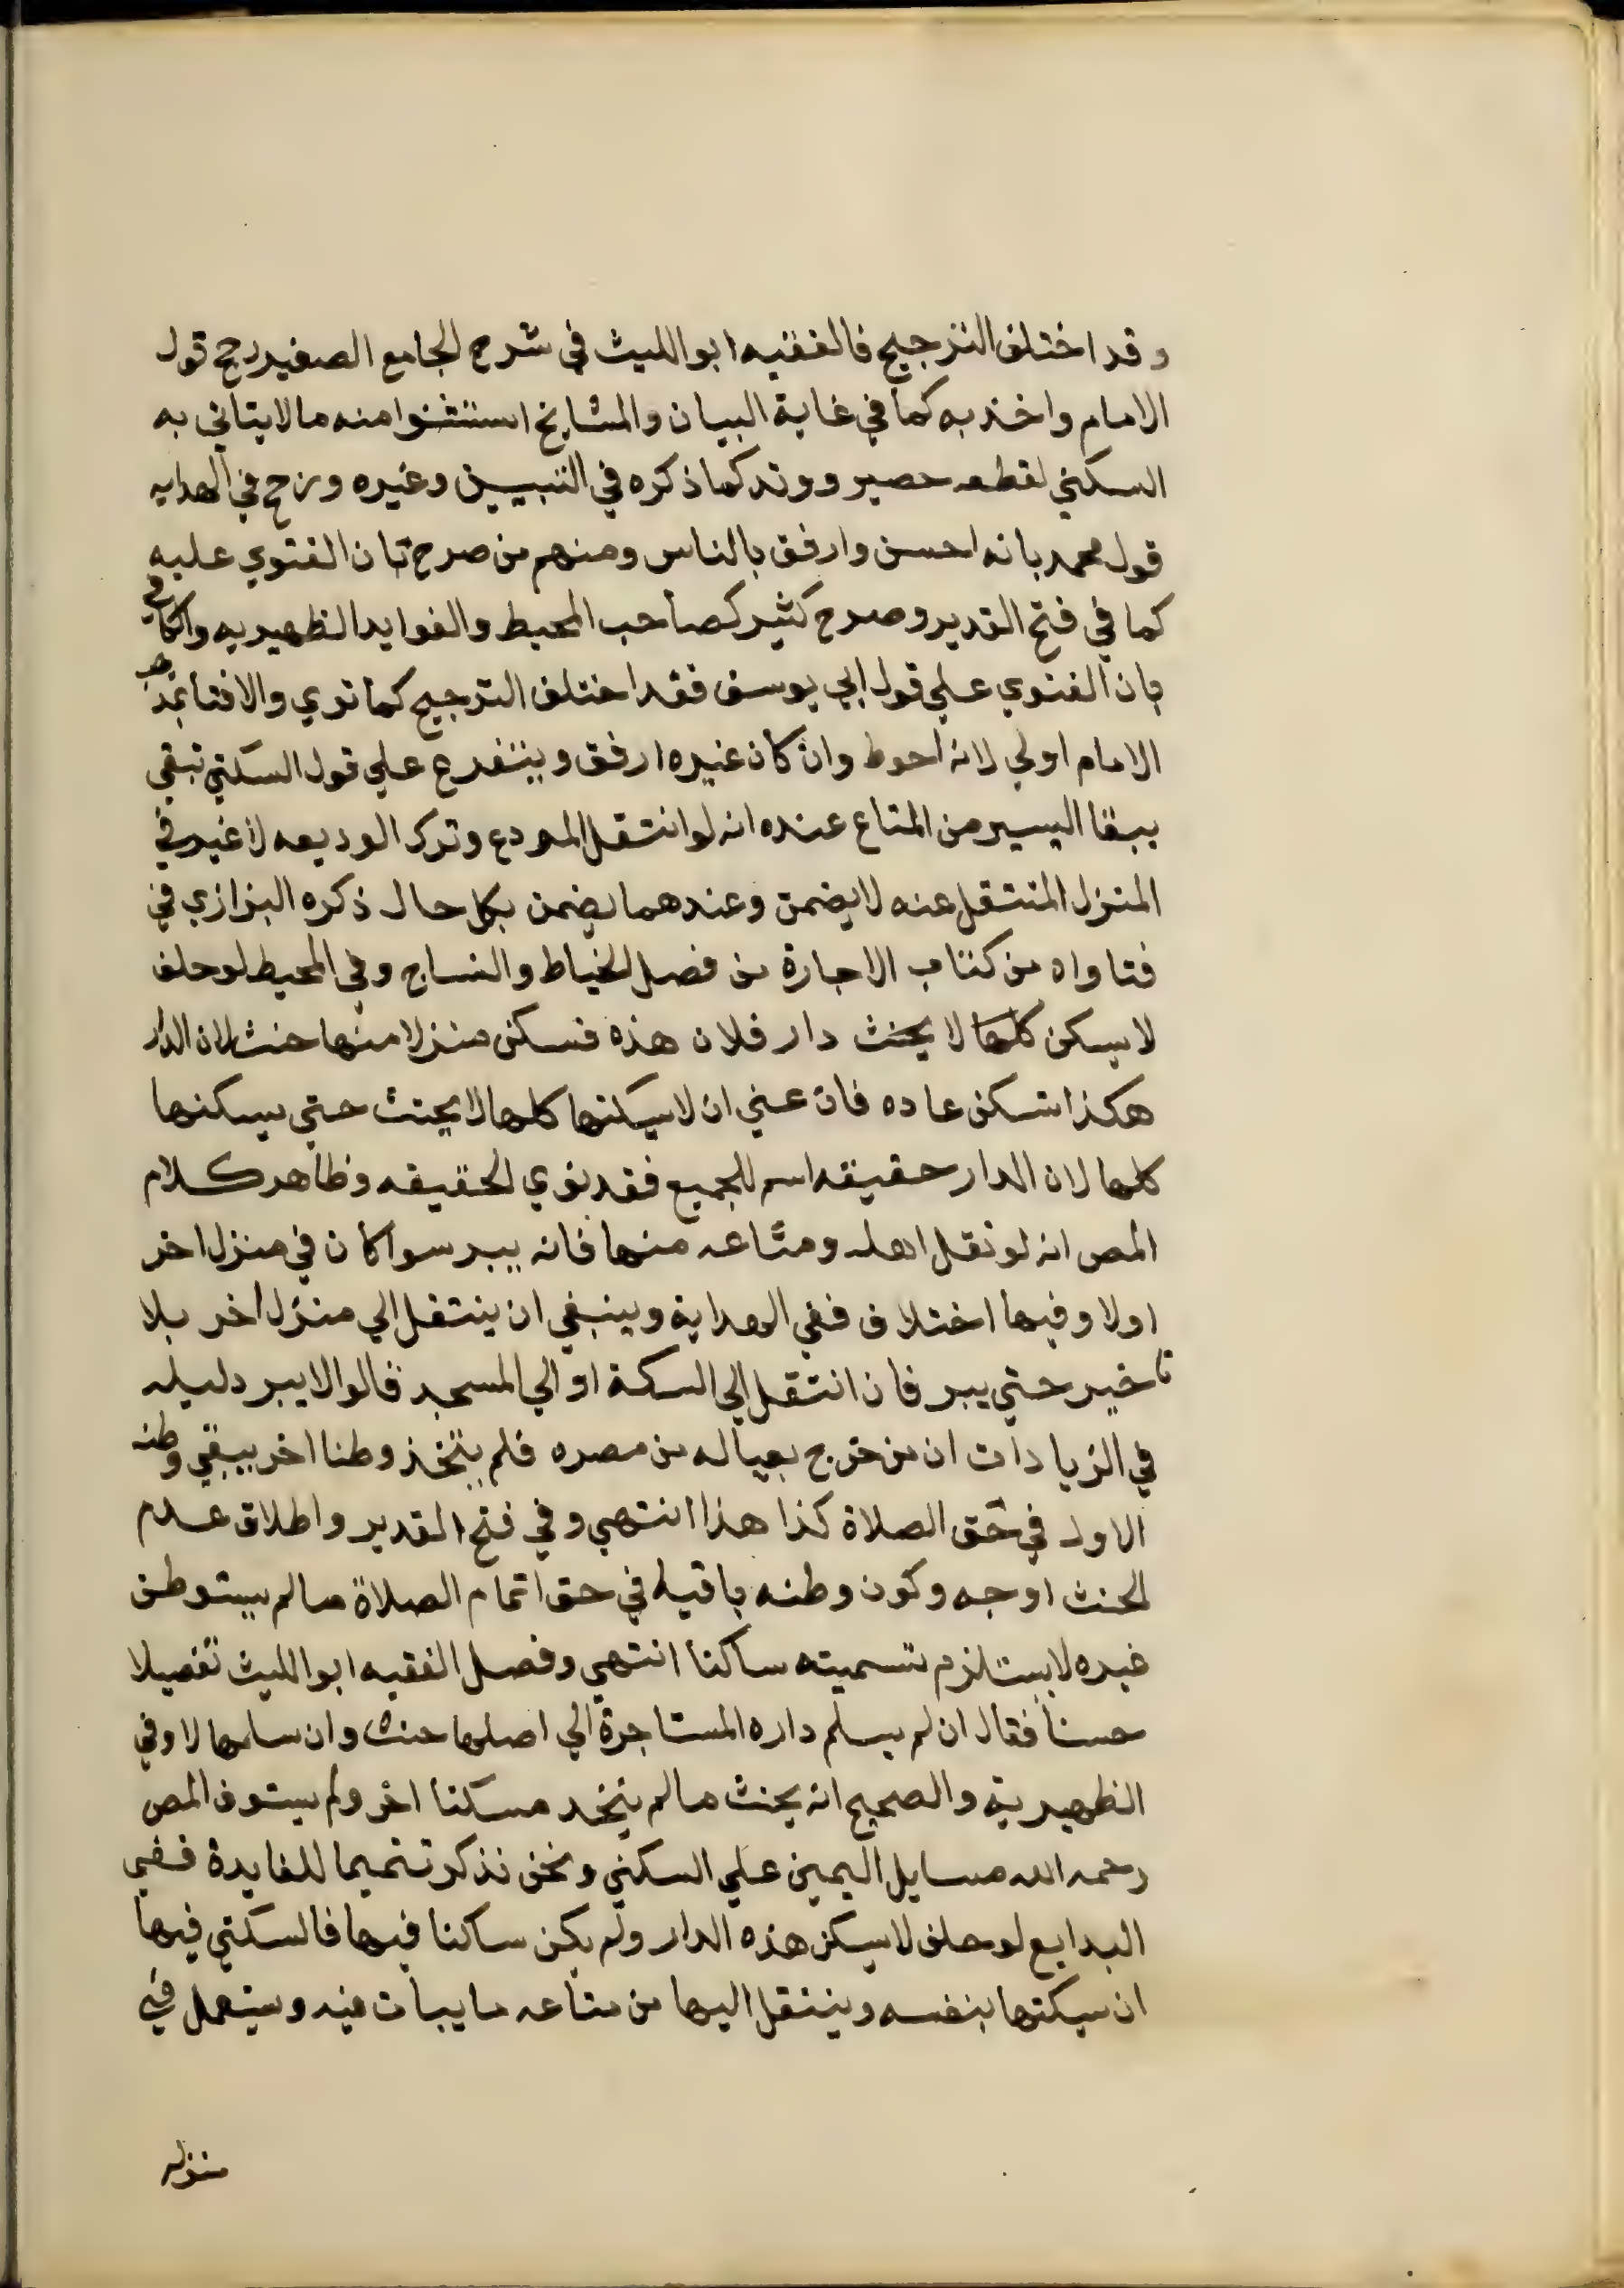 وقد اختلف الترجيح فالفقيه ابو الليث في شرح الجامع الصغير رجح قول
الامام واخذ به كما في غاية البيان والمشايخ استثنوا منه مالا يتاتي به
السكني لقطعه حصير ووتد كما ذكره في التبيين وغيره ورجح في الهدايه
قول محمد بانه احسن وارفق بالناس ومنهم من صرح بان الفتوي عليه
كما في فتح القدير وصرح كثير كصاحب المحيط والفوايد الظهيريه والكافي
بان الفتوي علي قول ابي يوسف فقد اختلف الترجيح كما تري والافتا بمذهب
الامام اولي لانه احوط وان كان غيره ارفق ويتفرع علي قول السكني تبقي
ببقا اليسير من المتاع عنده انه لو انتقل المودع وترك الوديعه لا غير في
المنزل المنتقل عنه لا يضمن وعندهما يضمن بكل حال ذكره البزازي في
فتاواه من كتاب الاجارة من فصل الخياط والنساج وفي المحيط لو حلف
لا يسكن كلها لا يحنث دار فلان هذه فسكن منزلا منها حنث لان الدار
هكذا تسكن عاده فان عني ان لا يسكنها كلها لا يحنث حتي يسكنها
كلها لان الدار حقيقه اسم للجميع فقد نوي الحقيقه وظاهر كلام
المص انه لو نقل اهله ومتاعه منها فانه يبر سوا كان في منزل اخر
اولا وفيها اختلاف ففي الهداية وينبغي ان ينتقل الي منزل اخر بلا
تاخير حتي يبر فان انتقل الي السكة او الي المسجد قالوا لا يبر دليله
في الزيادات ان من خرج بعياله من مصره فلم يتخذ وطنا اخر يبقي وطنه
الاول في حق الصلاة كذا هذا انتهي وفي فتح القدير واطلاق عدم
الحنث اوجه وكون وطنه باقيا في حق اتمام الصلاة مالم يستوطن
غيره لا يستلزم تسميته ساكنا انتهي وفصل الفقيه ابو الليث تفصيلا
حسنا فقال ان لم يسلم داره المستاجرة الي اصلها حنث وان سلمها لا وفي
الظهيرية والصحيح انه يحنث مالم يتخد مسكنا اخر ولم يستوف المص
رحمه الله مسايل اليمين علي السكني ونحن نذكر تتميما للفايدة ففي
البدايع لو حلف لا يسكن هذه الدار ولم يكن ساكنا فيها فالسكني فيها
ان يسكنها بنفسه وينتقل اليها من متاعه ما يبات فيه ويستعمل في
منزله